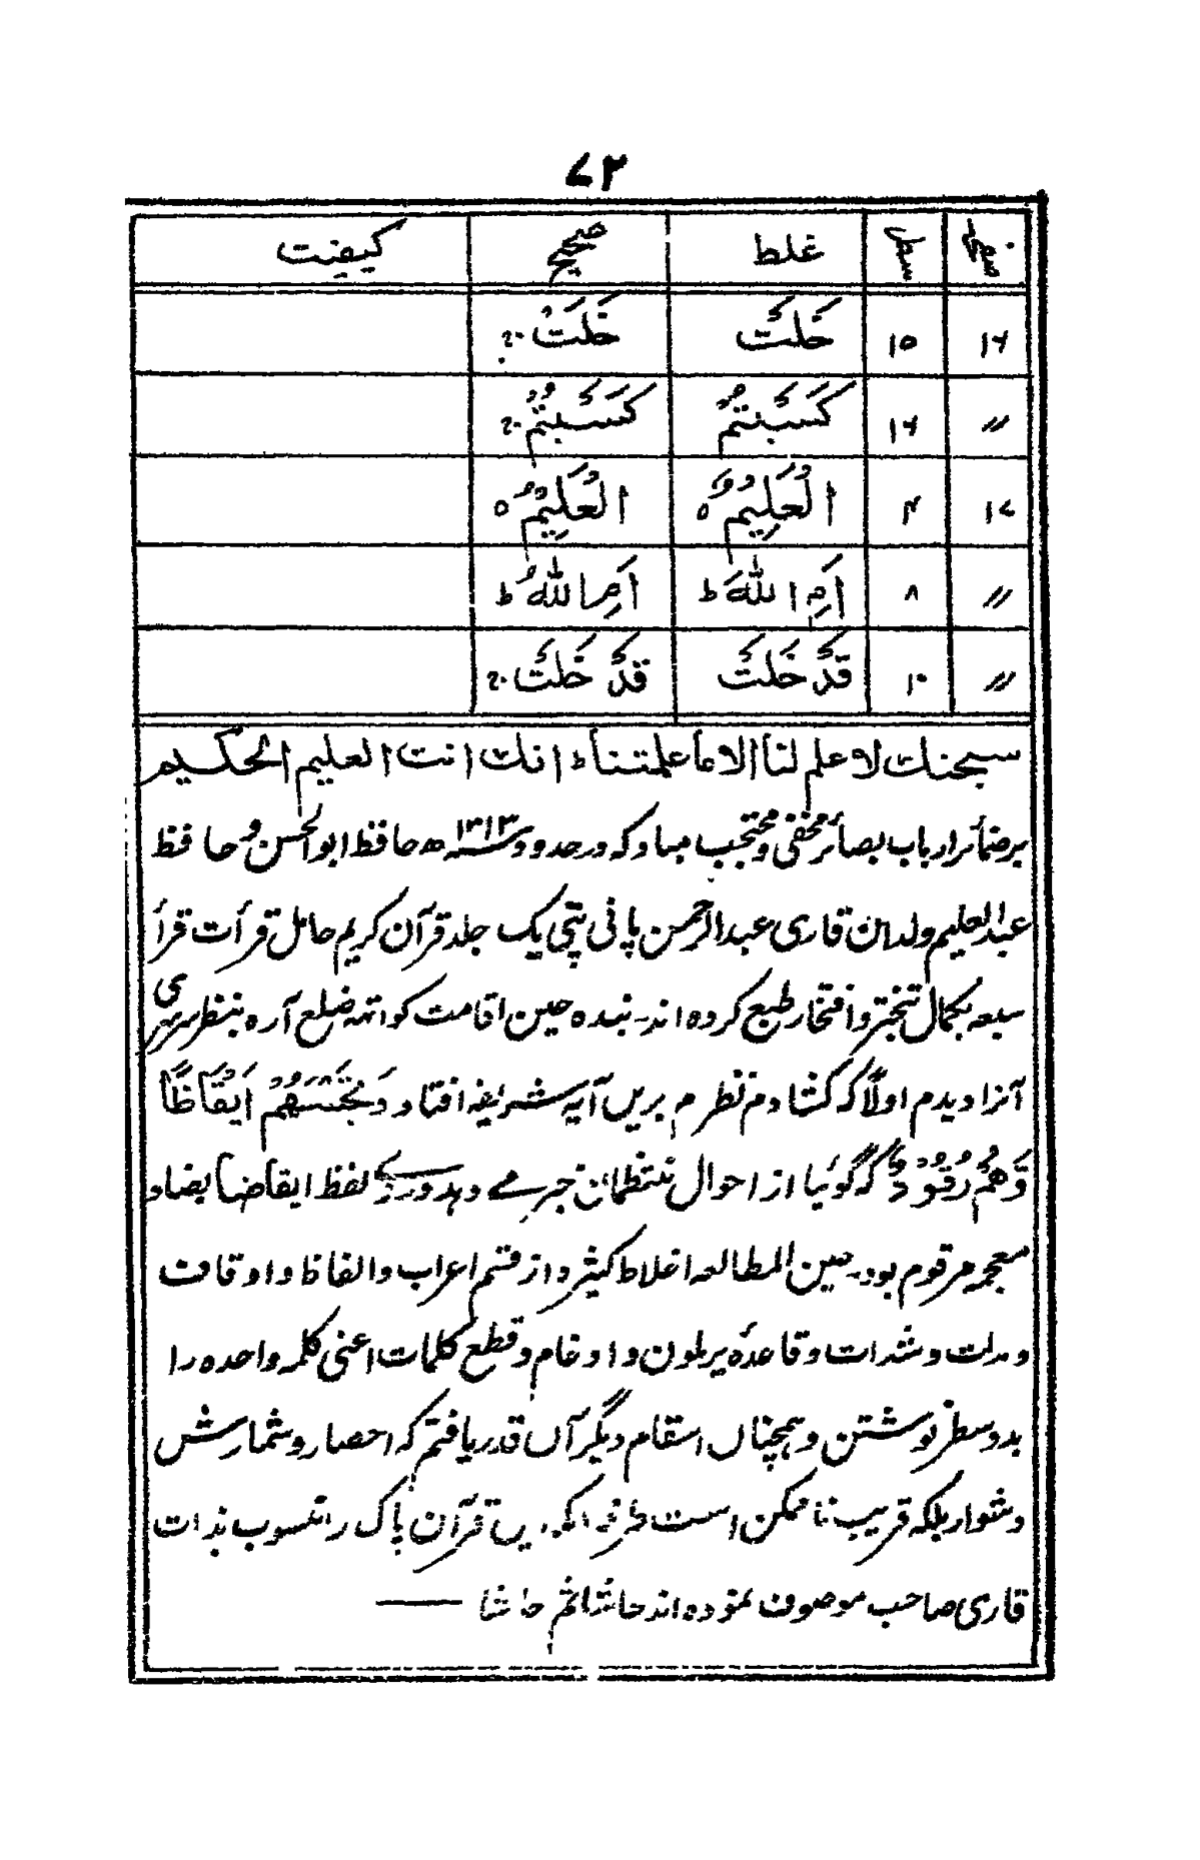 ۷۲
صفحہ سطر غلط صحیح کیفیت
۱۶ ۱۵ خَلَتۡ خَلَتۡ
〃 ۱۶ كَسَبْتُمْ كَسَبْتُمْ
۱۷ ۴ الْعَلِيْمُ ہ الْعَلِيْمُ ہ
〃 ۸ اَمِ اللّٰهَ ط اَمِ اللّٰهُ ط
〃 ۱۰ قَدْ خَلَتْ قَدْ خَلَتْ
سبحنك لا علم لنا الا ما علمتنا ط انك انت العليم الحكيم
برضمائر ارباب بصائر مخفی و محتجب مباد کہ در حدود سنہ ۱۳۱۳ھ حافظ ابوالحسن و حافظ
عبدالعلیم ولدان قاری عبدالرحمن پانی پتی یک جلد قرآن کریم حامل قرأت قرأ
سبعہ بکمال تبختر و افتخار طبع کردہ اند۔ بندہ حین اقامت کواتہہ ضلع آرہ بنظر سرسری
آنرا دیدم اولاً کہ کشادم نظرم بریں آیہ شریفہ افتاد وَتَحْسَبُهُمْ اَيْقَاظًا
وَّهُمْ رُقُوْدٌ کہ گوئیا از احوال منتظمان خبر مے دہد ورود لفظ ایقاضا بضاد
معجمہ مرقوم بود۔ حین المطالعہ اغلاط کثیرہ از قسم اعراب و الفاظ و اوقافت
و مدات و شدات و قاعدہٴ یرملون و ادغام و قطع کلمات اعنی کلمہ واحدہ را
بدو سطر نوشتن و ہمچناں اسقام دیگر آں قدر یافتم کہ احصار و شمارش
دشوار بلکہ قریب ناممکن است طرفہ اینکہ ایں قرآن پاک را منسوب بذات
قاری صاحب موصوف نمودہ اند حاشا ثم حاشا ——